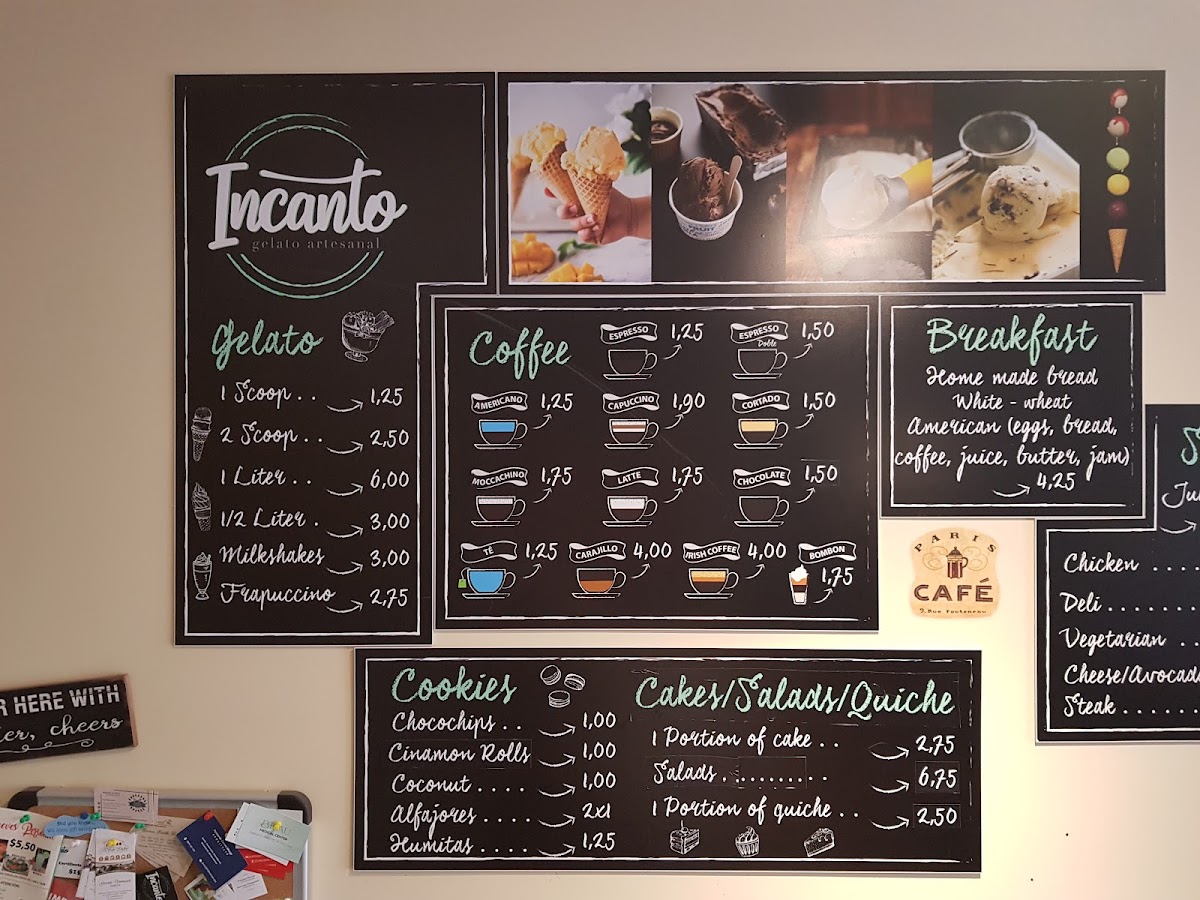 Incanto
gelato artesanal
Gelato
1 Scoop . . 1,25
2 Scoop . . 2,50
1 Liter . . 6,00
1/2 Liter . 3,00
Milkshakes 3,00
Frapuccino 2,75
Coffee
ESPRESSO 1,25
ESPRESSO 1,50
Doble
AMERICANO 1,25
CAPUCCINO 1,90
CORTADO 1,50
MOCCACHINO 1,75
LATTE 1,75
CHOCOLATE 1,50
TÉ 1,25
CARAJILLO 4,00
IRISH COFFEE 4,00
BOMBON
1,75
Breakfast
Home made bread
White - wheat
American (eggs, bread,
coffee, juice, butter, jam)
4,25
PARIS
CAFÉ
Chicken . . . .
Deli . . . . . . .
Vegetarian . .
Cheese/Avocado
Steak . . . . . .
Cookies
Chocochips . . . 1,00
Cinamon Rolls 1,00
Coconut . . . . . 1,00
Alfajores . . . . 2x1
Humitas . . . . . 1,25
Cakes/Salads/Quiche
1 Portion of cake . . 2,75
Salads . . . . . . . . . . 6,75
1 Portion of quiche . . 2,50
HERE WITH
cheers
$5,50
Incanto